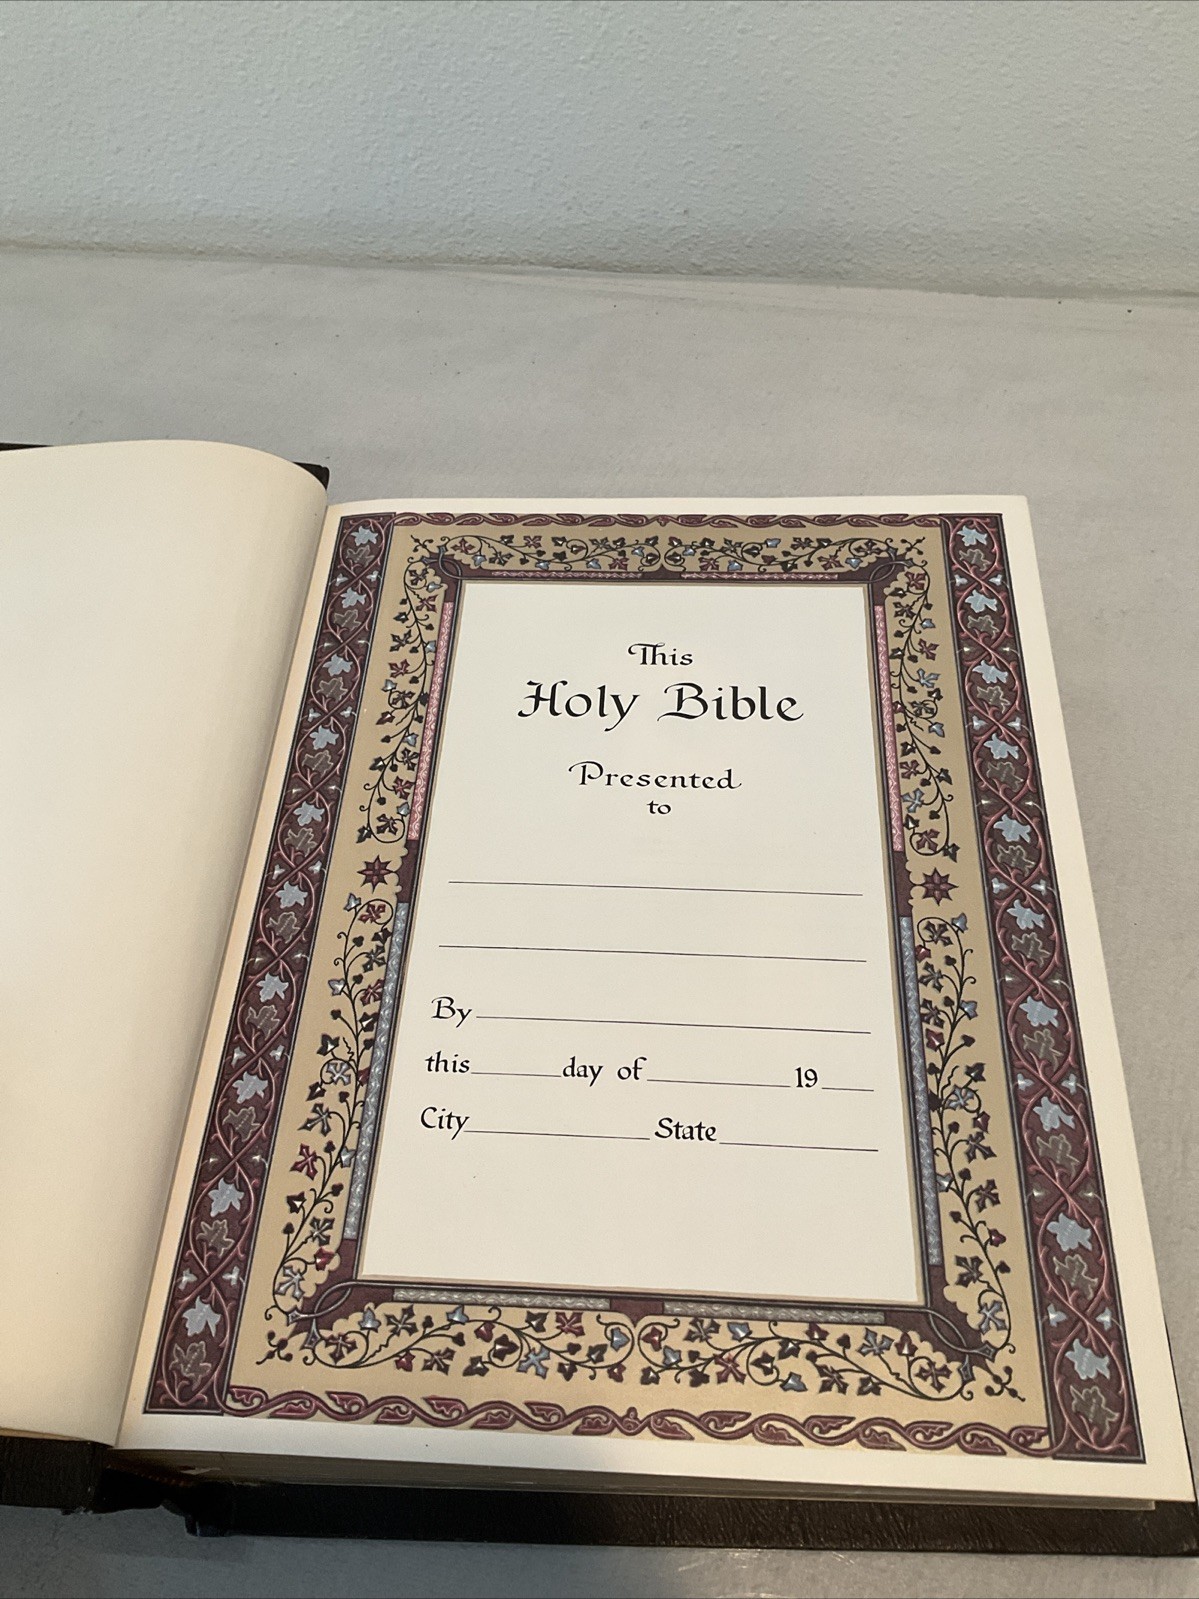 This
Holy Bible
Presented
to
By
this day of 19
City State